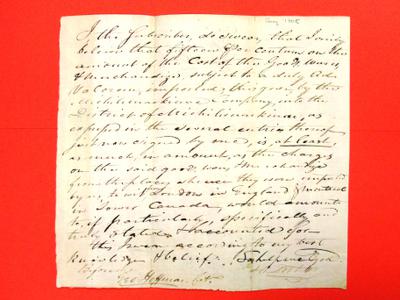 Aug 1808
I the Subscriber, do swear, that I verily
believe that fifteen per centum on the
amount of the Cost of the Goods, Wares,
& Merchandize, subject to a duty Ad
Valorem, imported, this year, by the
Michilimackinac Company, into the
District of Michilimackinac, as
expressed in the several entries thereof
just now signed by me, is at least
as much, in amount, as the charges
on the said goods, wares & merchandize
from the place whence they were imported
to London in England & Montreal
in Lower Canada, would amount
to, if particularly, specifically and
truly stated & accounted for
this swear according to my best
Knowledge & belief.
Geo Hoffman Colr.